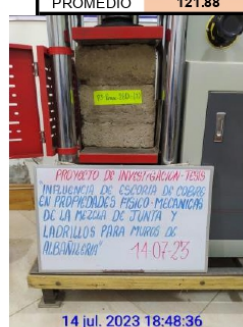 PROMEDIO 121.88
PROYECTO DE INVESTIGACION - TESIS
"INFLUENCIA DE ESCORIA DE COBRE
EN PROPIEDADES FISICO-MECANICAS
DE LA MEZCLA DE JUNTA Y
LADRILLOS PARA MUROS DE
ALBAÑILERIA" 14-07-23
14 jul. 2023 18:48:36